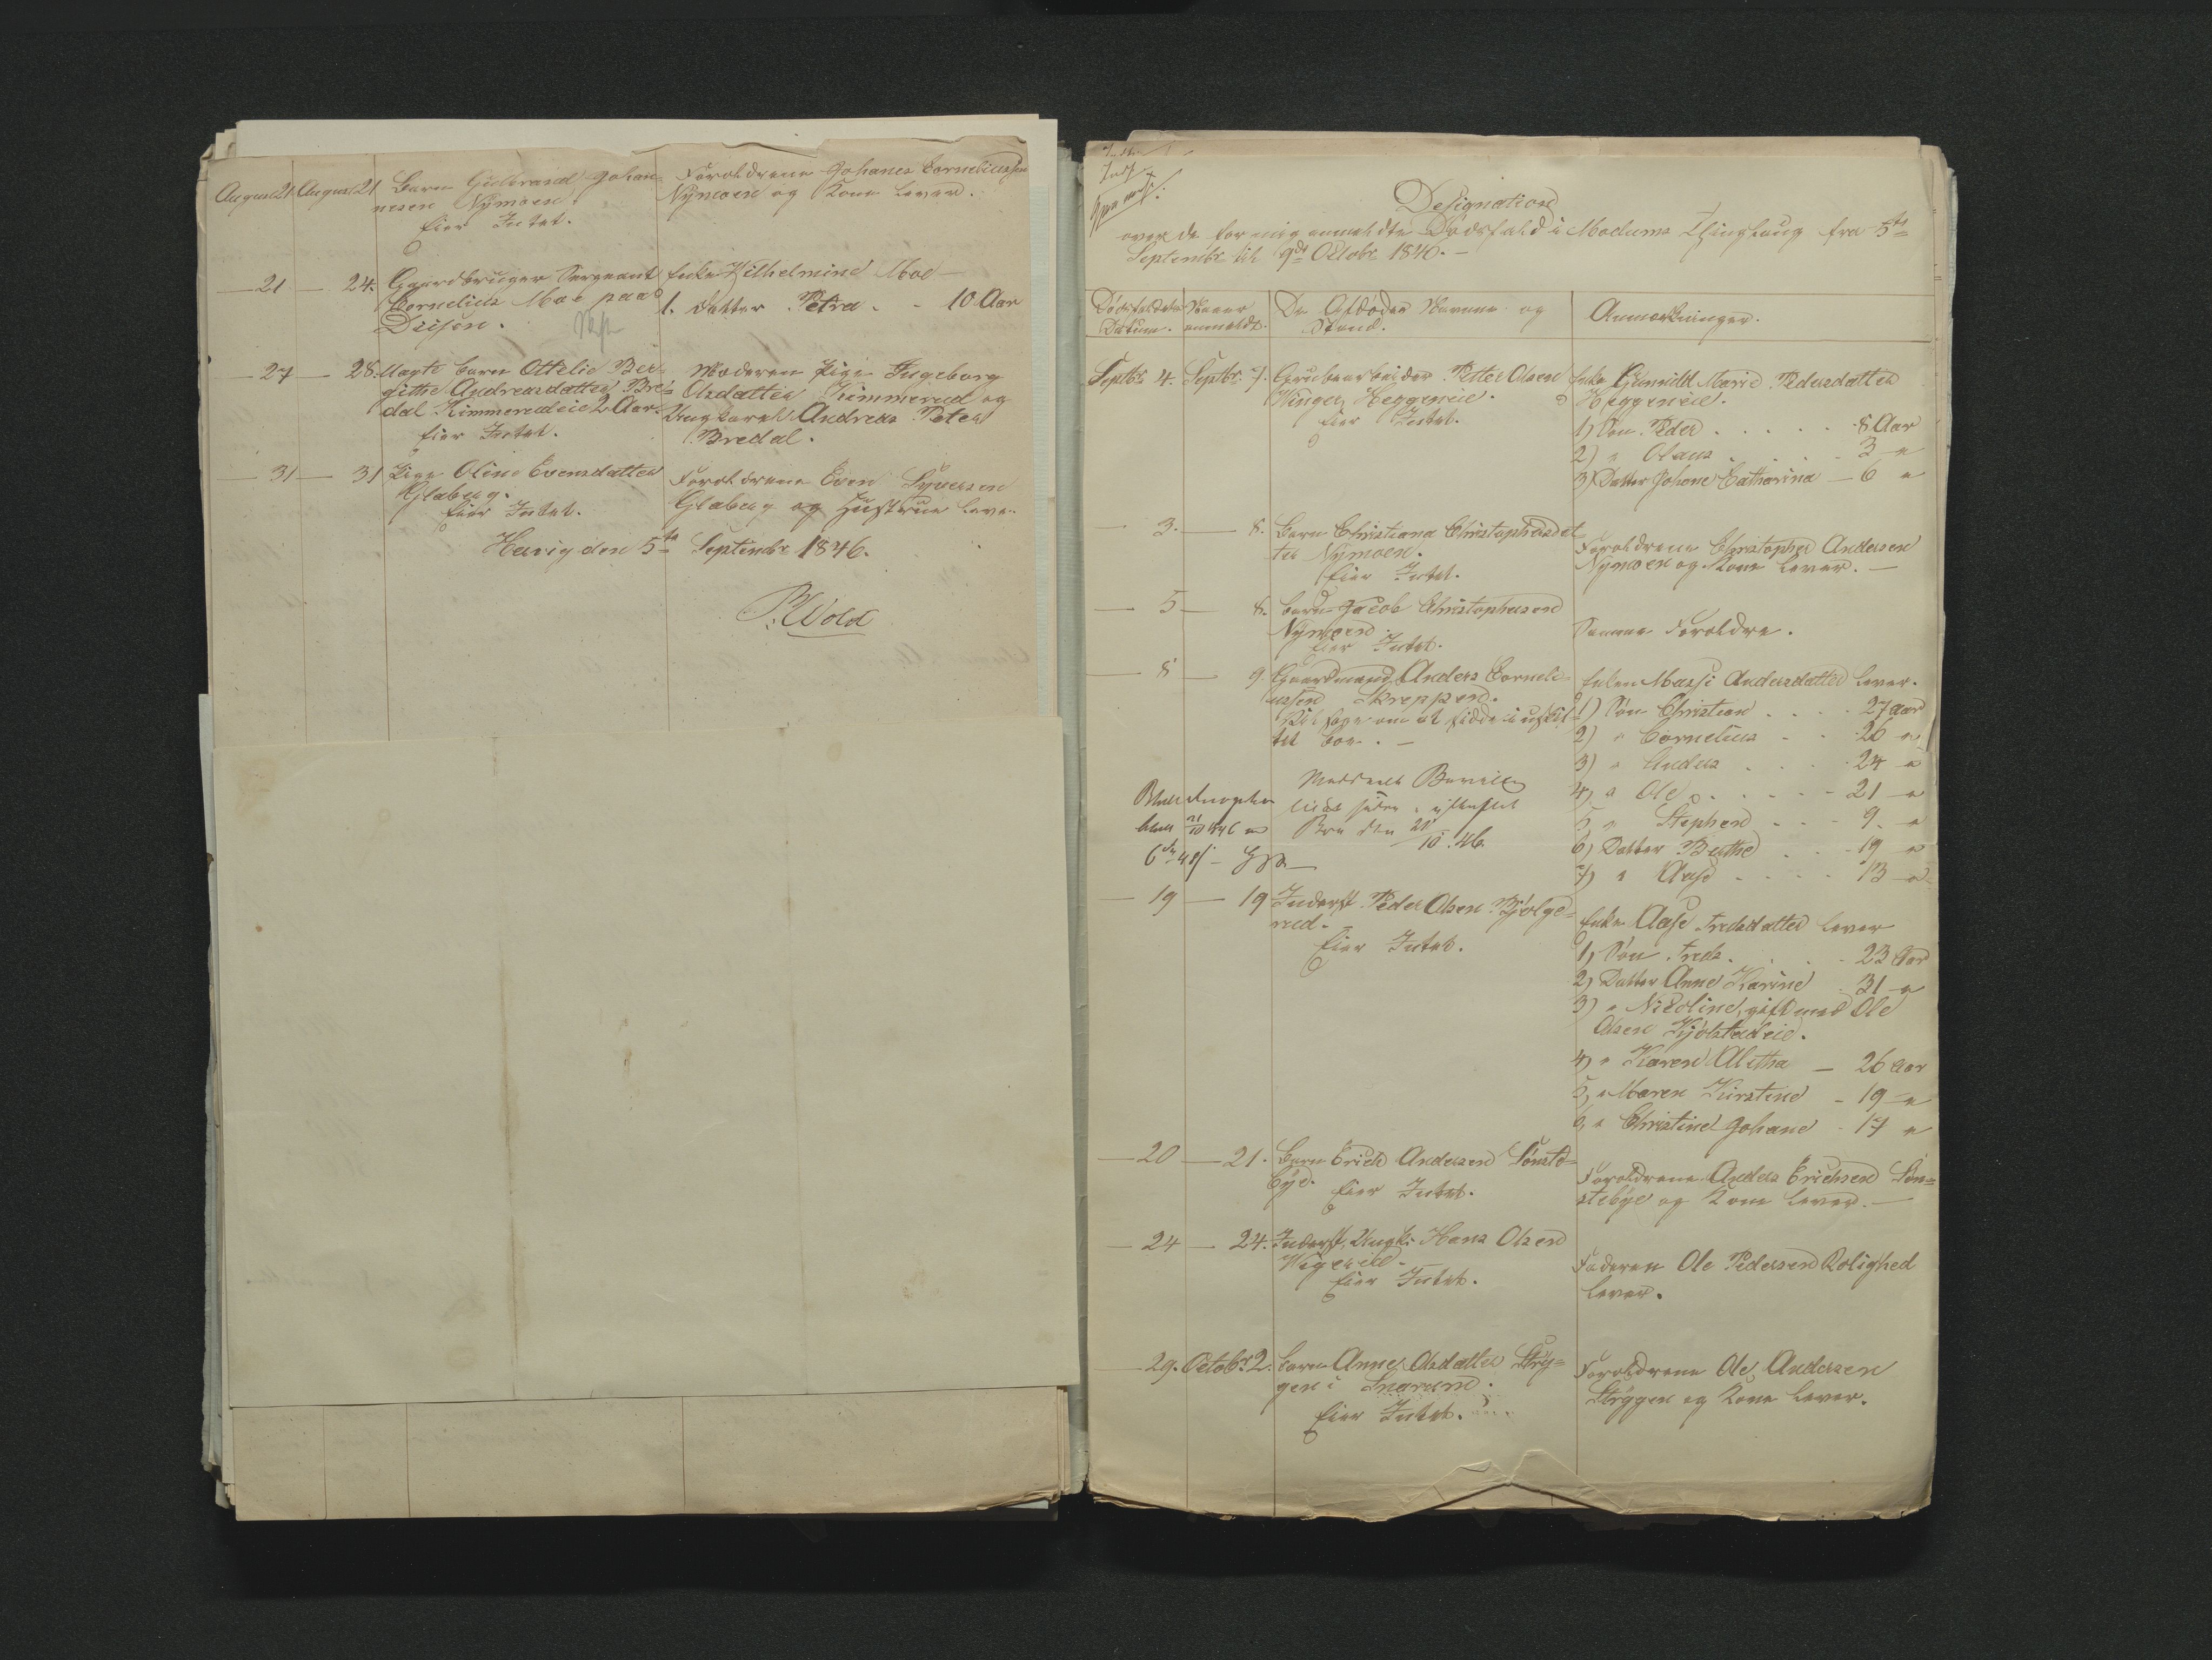 August 21. August 21. Barn Gulbrand Johan-
nesen Nymoen
Eier Intet.
Forældrene Johanes Corneliussen
Nymoen og Kone lever.
— 21 — 24. Gaardbruger Sergeant
Cornelius Moe paa
Disen.
Enke Wilhelmine Moe —
1. Datter Petra . - 10 Aar
— 27 — 28. Uægte Barn Ottelie Ber-
githe Andreasdatter Bre-
dal Kimmerudeie 2 Aar.
Eier Intet.
Moderen Pige Ingeborg
Olsdatter Kimmerud og
Ungkarl Andreas Peter
Bredal.
— 31 — 31 Pige Oline Evensdatter
Glaberg.
Eier Intet.
Forældrene Even Syversen
Glaberg og Hustrue lever.
Hævig den 5te Septembr 1846.
P. Wold
Designation
over de for mig anmeldte Dødsfald i Modums Thinglaug fra 5te
Septembr til 9de Octobr 1846. —
Dødsfaldets
Datum.
Naar
anmeldt.
De Afdødes Navne og
Stand.
Anmærkninger.
Septbr 4. Septbr 7. Grubearbeider Petter Olsen
Heggeneie.
Eier Intet.
Enke Gunnild Marie Pedersdatter
Heggeneie.
1) Søn Peder . . . . . 8 Aar
2) " Olaus . . . . 3 "
3) Datter Johane Catharina — 6 "
— 3. — 8. Barn Christiana Christophersdat-
ter Nymoen.
Eier Intet.
Forældrene Christopher Andersen
Nymoen og Kone lever. —
— 5 — 8. Barn Jacob Christophersen
Nymoen.
Eier Intet.
Samme Forældre.
— 8 — 9 Gaardmand Anders Corneli-
ussen Skreppen.
om at sidde i uskif-
tet Boe. —
Enken Massi Andersdatter lever.
1) Søn Christian . . . . 27 Aar
2) " Cornelius - . . 26 "
3) " Anders . . . . 24 "
4) " Ole . . . . . 21 "
5 " Stephen . . . 9. "
6) Datter Berthe . . . 19 "
7) " Aase . . . . 13 "
Meddeelt Bevilling
til at sidde i uskiftet
Boe den 21/10 46.
21/10 1846
— 19 — 19 Inderst Peder Olsen Bjølge-
rud.
Eier Intet.
Enke Aase Fredsdatter lever
1) Søn Freds. . . . . 23 Aar
2) Datter Anne Karine . 31 "
3) " Nicoline, gift med Ole
Olsen Kjølstadeie.
4) " Karen Alethea — 26 Aar
5, " Maren Kirstine - 19 "
6, " Christine Johane - 17 "
— 20 — 21. Barn Erich Andersen Sønste-
bye.
Eier Intet.
Forældrene Anders Erichsen Søn-
stebye og Kone lever. —
— 24 — 24. Inderst, Ungk: Hans Olsen
Eier Intet.
Faderen Ole Pedersen Rolighed
lever.
— 29. Octobr 2. Barn Anne Olsdatter Stry-
gen i Snarum.
Eier Intet.
Forældrene Ole Andersen
Stryggen og Kone lever.